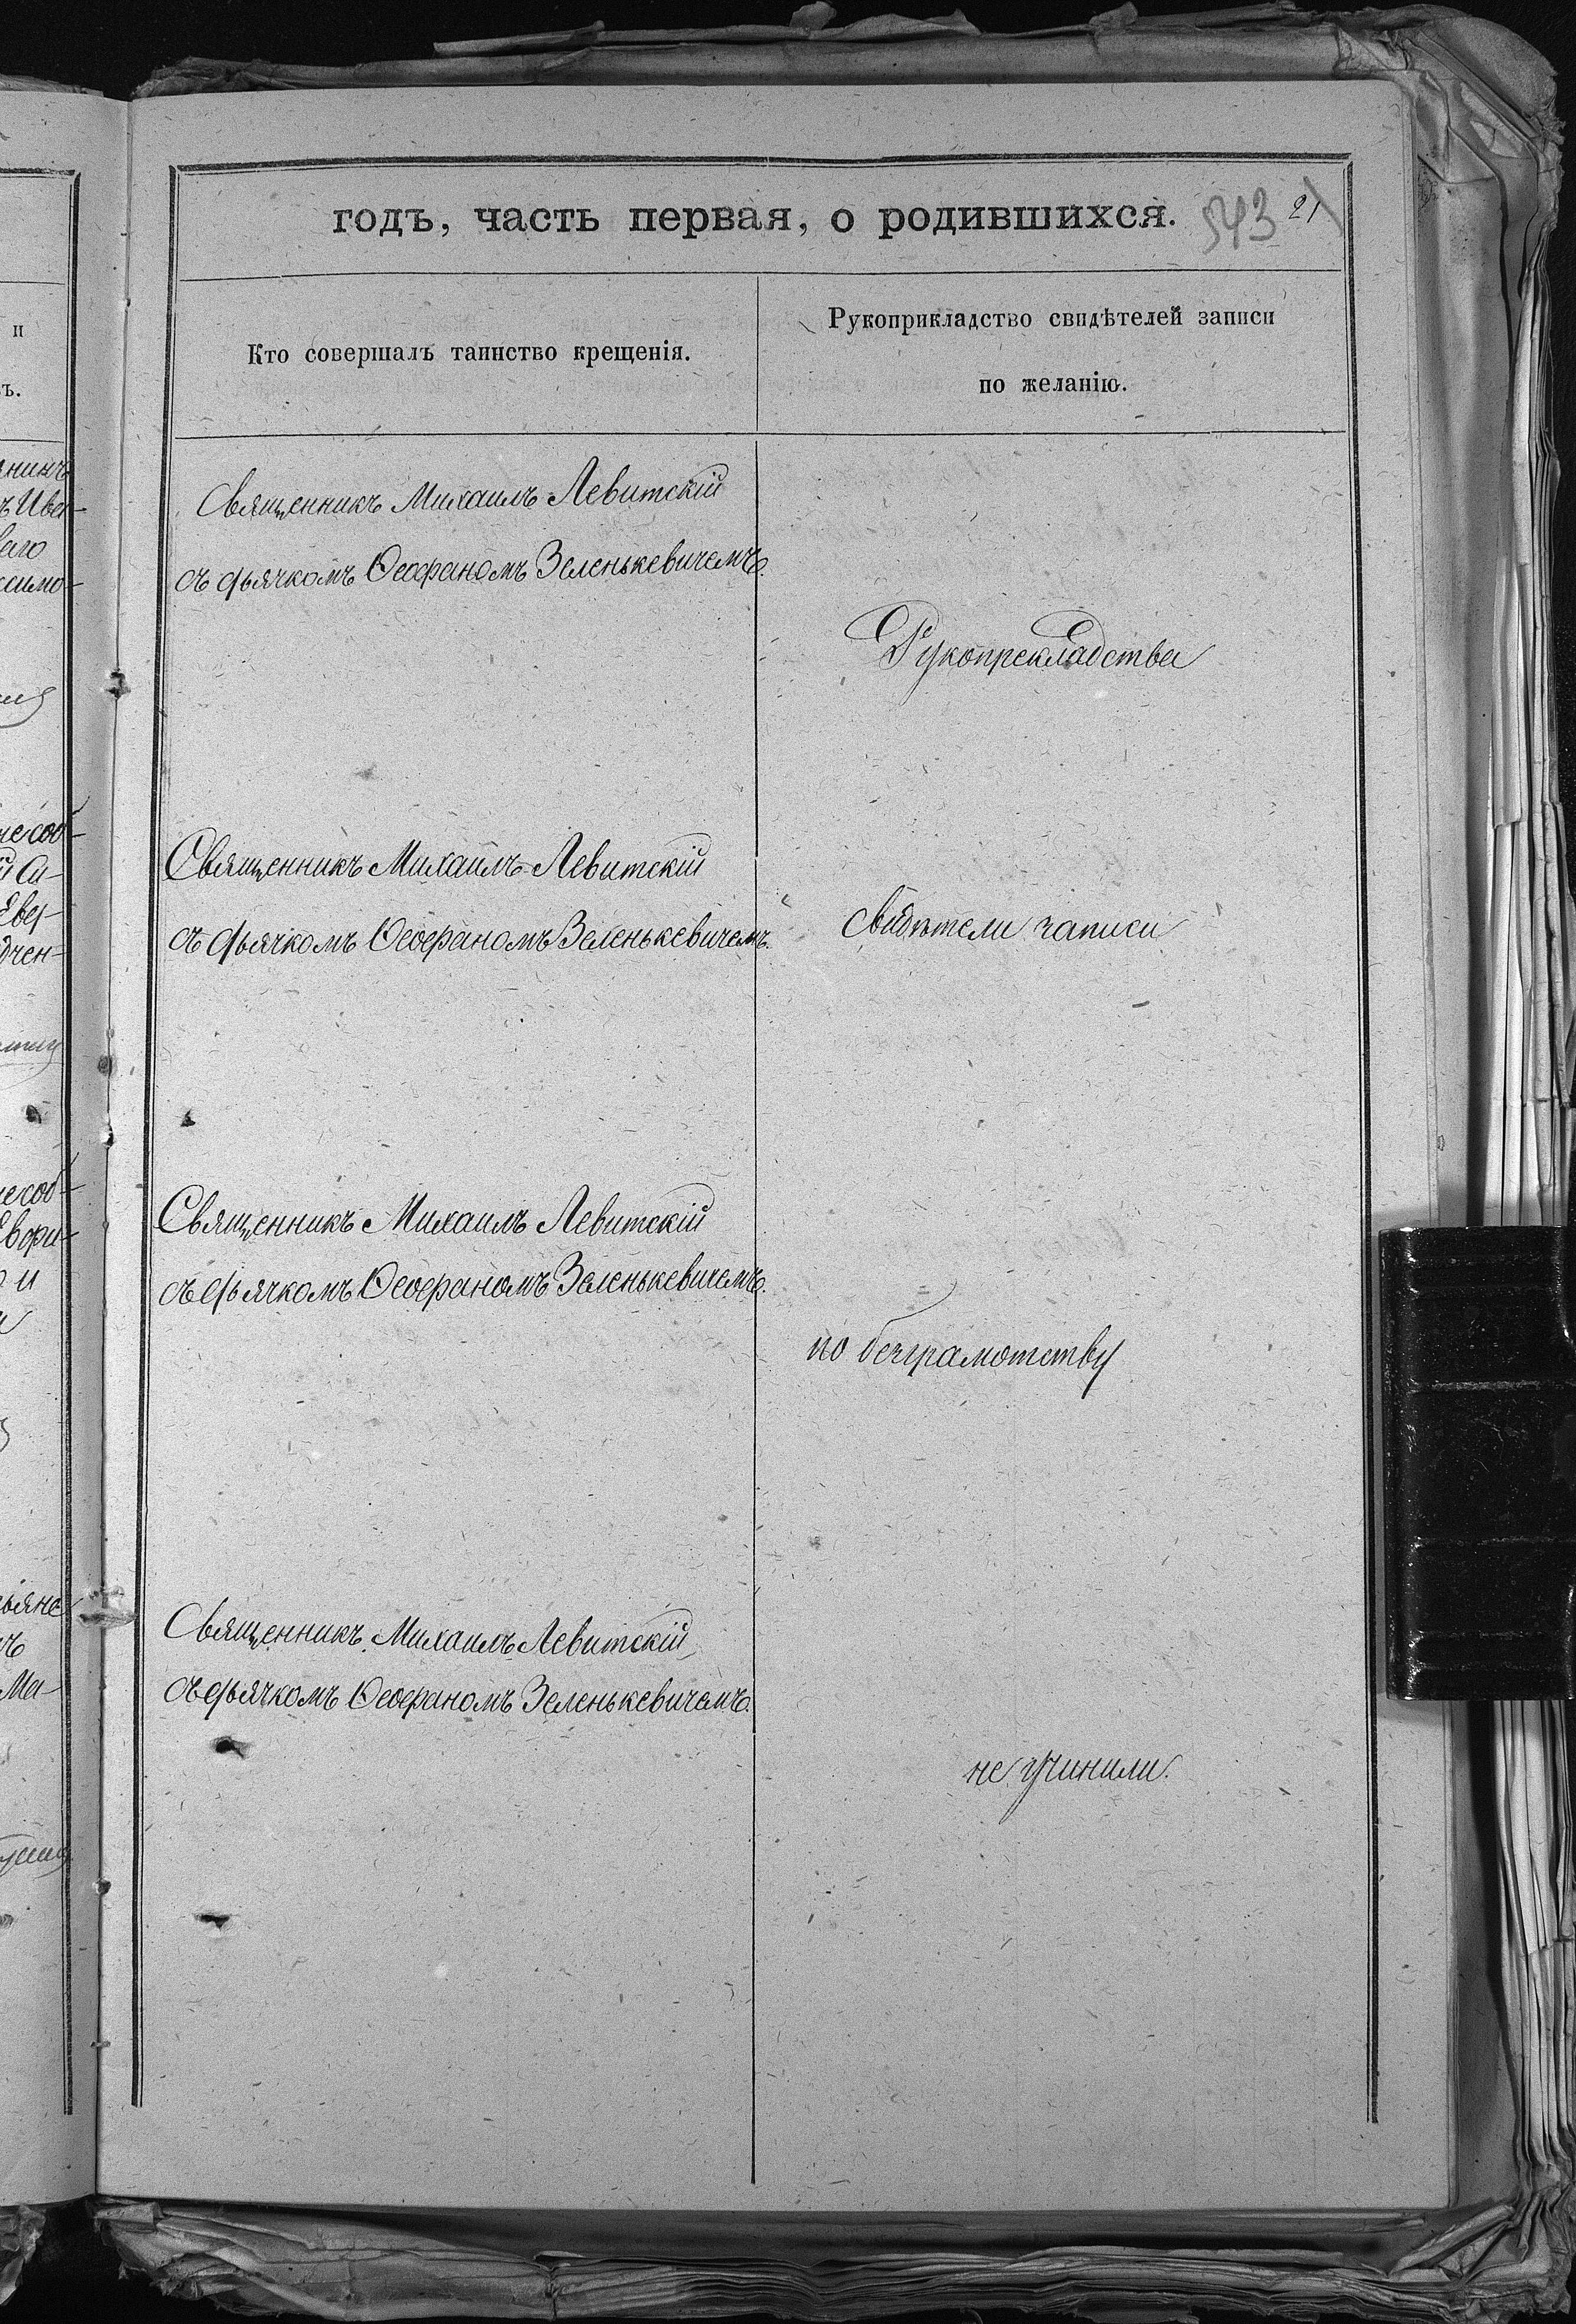 годъ, часть первая, о родившихся. 543 21
Кто совершалъ таинство крещенія.
Рукоприкладство свидѣтелей записи
по желанію.
Священникъ Михаилъ Левитскій
съ дьячкомъ Ѳеофаномъ Зеленькевичемъ.
Рукопрекладства
Священникъ Михаилъ Левитскій
съ дьячкомъ Ѳеофаномъ Зеленькевичемъ.
свидѣтели записи
Священникъ Михаилъ Левитскій
съ дьячкомъ Ѳеофаномъ Зеленькевичемъ.
по безграмотству
Священникъ Михаилъ Левитскій
съ дьячкомъ Ѳеофаномъ Зеленькевичемъ.
не учинили.